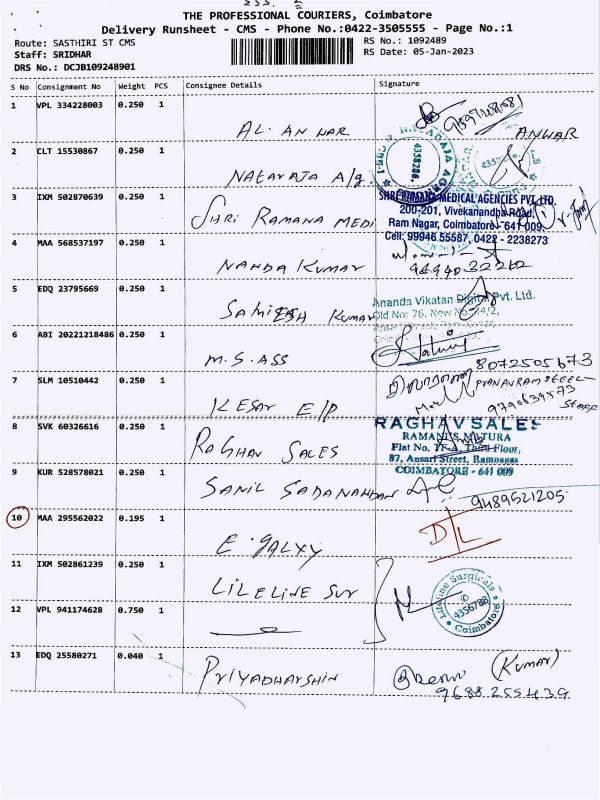 THE PROFESSIONAL COURIERS, Coimbatore
Delivery Runsheet - CMS - Phone No.:0422-3505555 - Page No.:1
Route: SASTHIRI ST CMS
RS No.: 1092489
Staff: SRIDHAR
RS Date: 05-Jan-2023
DRS No.: DCJB109248901
S No Consignment No Weight PCS Consignee Details Signature
1 VPL 334228003 0.250 1
AL. ANWAR ANWAR
2 CLT 15530867 0.250 1
NATARAJA A/g
3 IXM 502870639 0.250 1
SHRI RAMANA MEDI
SHRI RAMANA MEDICAL AGENCIES PVT. LTD.
200-201, Vivekanandha Road,
Ram Nagar, Coimbatore - 641 009
Cell: 99946 55587, 0422 - 2238273
4 MAA 568537197 0.250 1
NANDA KUMAR
5 EDQ 23795669 0.250 1
SAMIESH KUMAR
Ananda Vikatan Digital Pvt. Ltd.
6 ABI 20221218486 0.250 1
M.S. ASS
8072505673
7 SLM 10510442 0.250 1
PRANAVRAM STEEL
KESAR E/P
9790639573
STAFF
8 SVK 60326616 0.250 1
RAGHAV SALES
RAGHAV SALES
87, Ansari Street, Ramnagar
COIMBATORE - 641 009
9 KUR 528578021 0.250 1
SANIL SADANANDAN
9489521205
10 MAA 295562022 0.195 1
E GALXY
D/L
11 IXM 502861239 0.250 1
LILELINE SUR
Lifeline Surgicals
4356788
Coimbatore
12 VPL 941174628 0.750 1
13 EDQ 25580271 0.040 1
PRIYADHARSHIN
(KUMAR)
9688255439